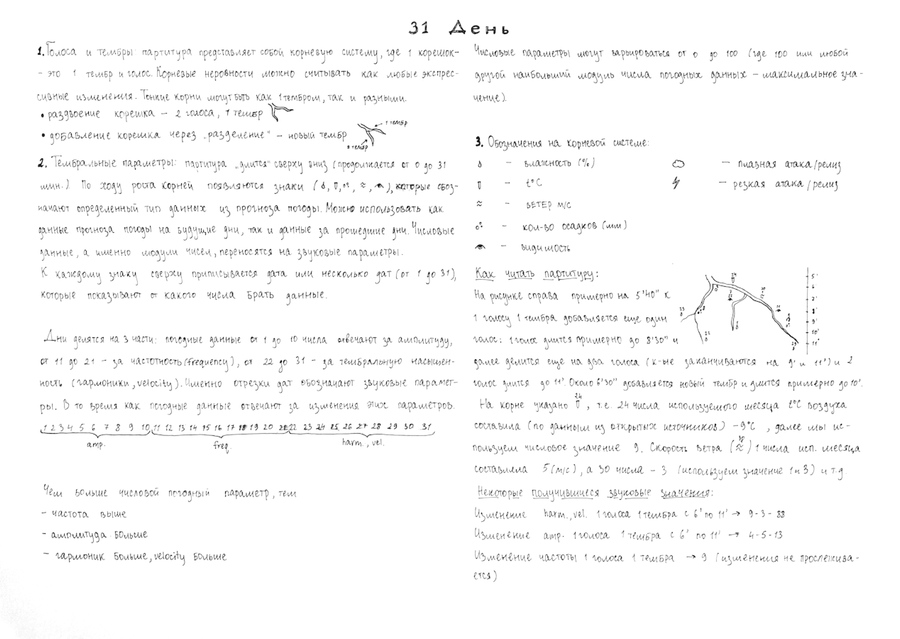 31 День
1. Голоса и тембры: партитура представляет собой корневую систему, где 1 корешок-
- это 1 тембр и голос. Корневые неровности можно считывать как любые экспрес-
сивные изменения. Тонкие корни могут быть как 1 тембром, так и разными.
• раздвоение корешка – 2 голоса, 1 тембр
• добавление корешка через „разделение" – новый тембр
1 тембр
2. Тембральные параметры: партитура „длится" сверху вниз (продолжается от 0 до 31
мин.) По ходу роста корней появляются знаки ( , , , ≈, ), которые обоз-
начают определенный тип данных из прогноза погоды. Можно использовать как
данные прогноза погоды на будущие дни, так и данные за прошедшие дни. Числовые
данные, а именно модули чисел, переносятся на звуковые параметры.
К каждому знаку сверху приписывается дата или несколько дат (от 1 до 31),
которые показывают от какого числа брать данные.
Дни делятся на 3 части: погодные данные от 1 до 10 числа отвечают за амплитуду,
от 11 до 21 – за частотность (frequency), от 22 до 31 – за тембральную насыщен-
ность (гармоники, velocity). Именно отрезки дат обозначают звуковые парамет-
ры. В то время как погодные данные отвечают за изменения этих параметров.
1 2 3 4 5 6 7 8 9 10 11 12 13 14 15 16 17 18 19 20 21 22 23 24 25 26 27 28 29 30 31
amp. freq. harm., vel.
Чем больше числовой погодный параметр, тем
– частота выше
– амплитуда больше
– гармоник больше, velocity больше
Числовые параметры могут варьироваться от 0 до 100 (где 100 или любой
другой наибольший модуль числа погодных данных – максимальное зна-
чение).
3. Обозначения на корневой системе:
– влажность (%)
– t°C
≈ – ветер м/с
– кол-во осадков (мм)
– видимость
– плавная атака/релиз
– резкая атака/релиз
Как читать партитуру:
На рисунке справа примерно на 5'40" к
1 голосу 1 тембра добавляется еще один
голос: 1 голос длится примерно до 8'30" и
далее делится еще на два голоса (к-ые заканчиваются на 9' и 11') и 2
голос длится до 11'. Около 6'30" добавляется новый тембр и длится примерно до 10'.
На корне указано 24, т.е. 24 числа используемого месяца t°C воздуха
составила (по данным из открытых источников) -9°C, далее мы ис-
пользуем числовое значение 9. Скорость ветра (≈) 1 числа исп. месяца
составила 5 (м/с), а 30 числа – 3 (используем значение 1 и 3) и т д
Некоторые получившиеся звуковые значения:
Изменение harm., vel. 1 голоса 1 тембра с 6' по 11' → 9-3-88
Изменение amp. 1 голоса 1 тембра с 6' по 11' → 4-5-13
Изменение частоты 1 голоса 1 тембра → 9 (изменения не прослежива-
ется)